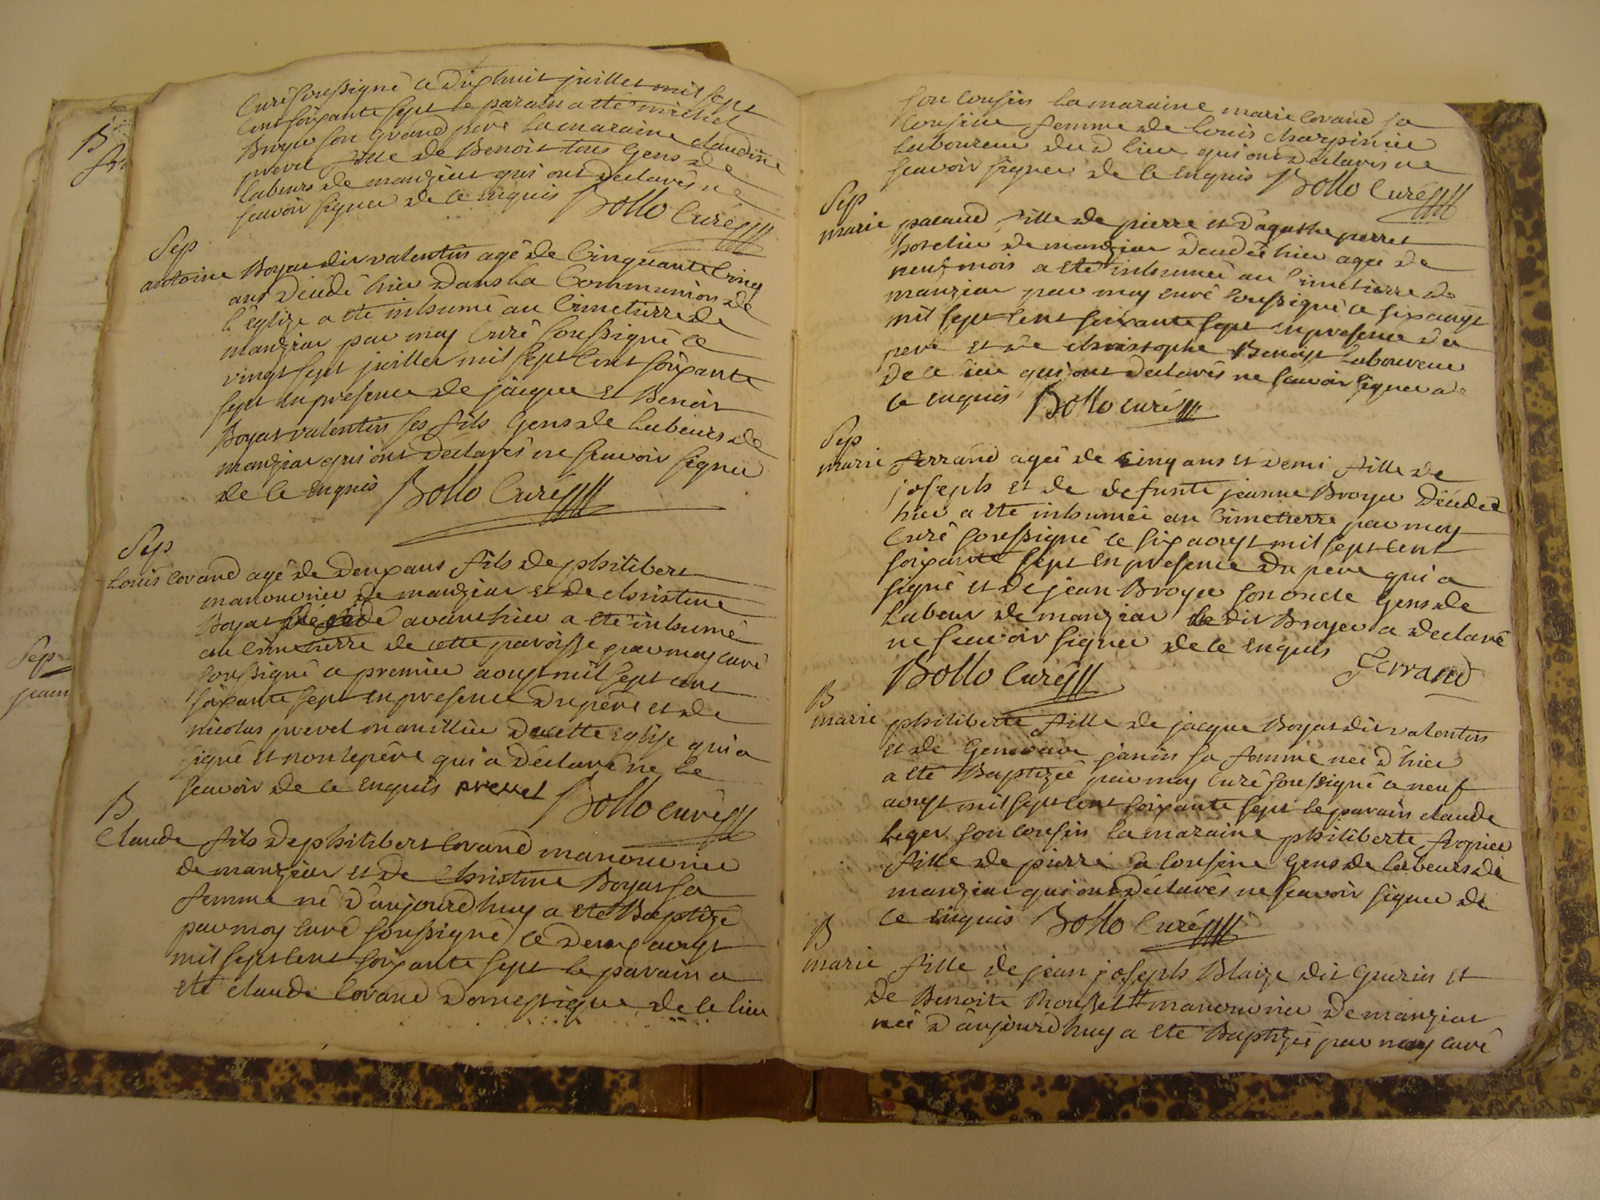 curé soussigné ce dixhuit juillet mil sept
cent soixante sept le parain a eté michel
Broye son grand père la maraine claudine
prevel fille de Benoit tous gens de
labeurs de manziat qui ont declarés ne
scavoir signer de ce enquis Bollo Curé
Sep
antoine Boyat dit valentin agé de Cinquante Cinq
ans décédé hier dans la Communion de
l'eglize a eté inhumé au Cimetierre de
manziat par moy Curé soussigné ce
vingt sept juillet mil sept Cent soixante
sept en presence de jacque et Benoit
Boyat valentin ses fils gens de labeurs de
manziat qui ont declarés ne scavoir signer
de ce enquis Bollo Curé
Sep
Louis Corand agé de deux ans fils de philibert
manouvrier de manziat et de christine
Boyat décédé avant hier a eté inhumé
au Cimetierre de cette paroisse par moy curé
soussigné ce premier aoust mil sept cent
soixante sept en presence du père et de
nicolas prevel marillier de cette Eglise qui a
signé et non le père qui a déclaré ne le
scavoir de ce enquis prevel Bollo curé
B
Claude fils de philibert Corand manouvrier
de manziat et de christine Boyat sa
femme né d'aujourdhuy a eté Baptizé
par moy curé soussigné ce deux aoust
mil sept cent soixante sept le parain a
eté claude Corand domestique de ce lieu
son cousin la maraine marie Corand sa
cousine femme de louis charpinier
laboureur du d lieu qui ont declarés ne
scavoir signer de ce enquis Bollo Curé
Sep
marie pacaud fille de pierre et d'agathe perret
de manziat decedée hier agée de
neuf mois a eté inhumée au cimetierre de
manziat par moy curé soussigné ce six aoust
mil sept cent soixante sept en presence du
pere et de christophe Benoist laboureur
de ce lieu qui ont declarés ne scavoir signer de
ce enquis Bollo curé
Sep
marie ferrand agée de cinq ans et demi fille de
joseph et de defunte jeanne Broyer décédée
hier a eté inhumée au cimetierre par moy
Curé soussigné ce six aoust mil sept cent
soixante sept en presence du pere qui a
signé et de jean Broyer son oncle gens de
labeur de manziat le dit Broyer a declaré
ne scavoir signer de ce enquis
Bollo Curé Ferrand
B
marie philiberte fille de jacque Boyat dit valentin
et de Genevieve janin sa femme née d'hier
a eté Baptizée par moy curé soussigné ce neuf
aoust mil sept cent soixante sept le parain claude
Leger son cousin la maraine philiberte
fille de pierre sa cousine gens de labeurs de
manziat qui ont déclarés ne scavoir signer de
ce enquis Bollo Curé
B
marie fille de jean joseph Blaize dit Guerin et
de Benoite Rousset manouvrier de manziat
née d'aujourdhuy a eté Baptizée par moy curé
B
Sep